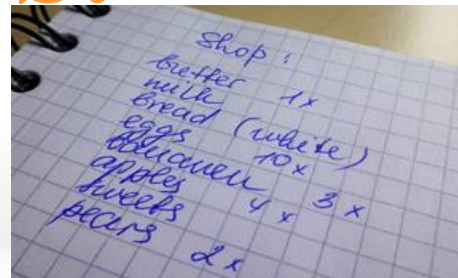 Shop :
butter 1x
milk
bread (white)
eggs 10x
bananen 3x
apples 4x
sweets
pears 2x